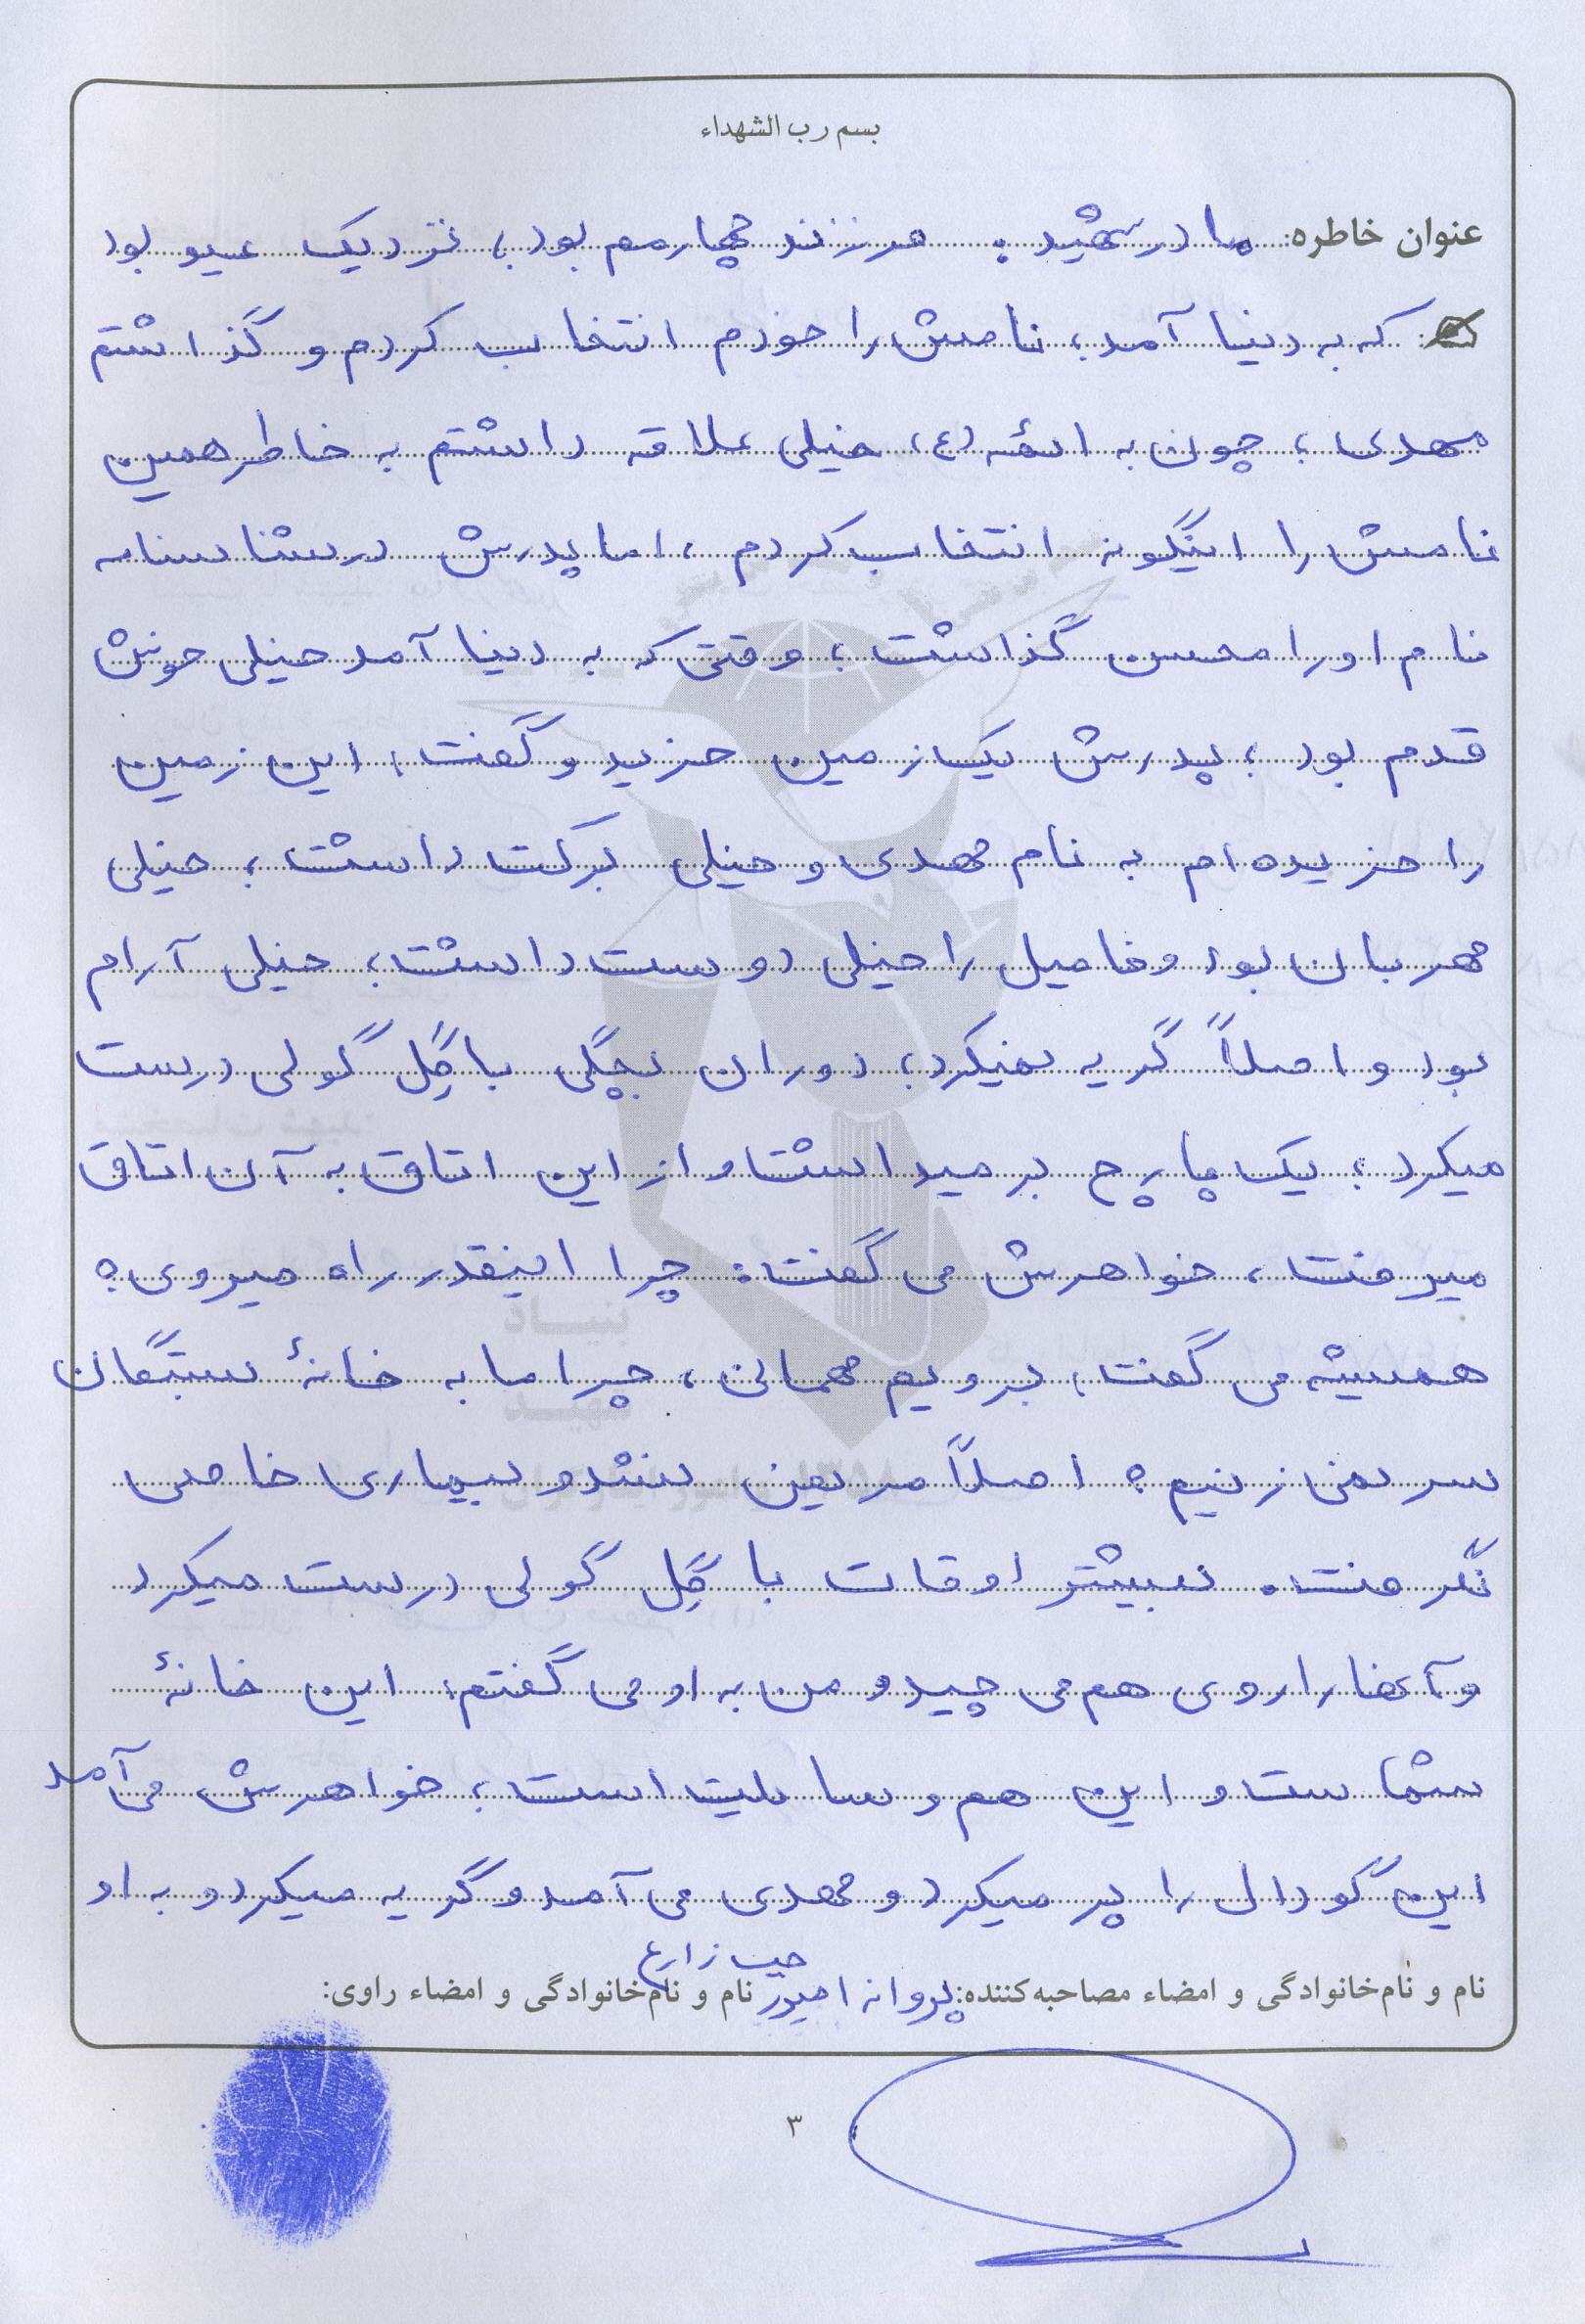 بسم رب الشهداء
عنوان خاطره: مادر شهید: فرزند چهارمم بود؛ نزدیک عید بود
که به دنیا آمد؛ نامش را خودم انتخاب کردم و گذاشتم
مهدی؛ چون به ائمه (ع)، خیلی علاقه داشتم به خاطر همین
نامش را اینگونه انتخاب کردم، اما پدرش در شناسنامه
نام او را محسن گذاشت؛ وقتی که به دنیا آمد خیلی خوش
قدم بود؛ پدرش یک زمین خرید و گفت: این زمین
را خریده ام به نام مهدی و خیلی برکت داشت؛ خیلی
مهربان بود و فامیل را خیلی دوست داشت؛ خیلی آرام
بود و اصلاً گریه نمیکرد؛ دوران بچگی با گِل گولی درست
میکرد؛ یک پارچ برمیداشت و از این اتاق به آن اتاق
میرفت، خواهرش می گفت: چرا اینقدر راه میروی؟
همیشه می گفت: برویم مهمانی، چرا ما به خانهٔ بستگان
سر نمی زنیم؟ اصلاً مریض نشد و بیماری خاصی
نگرفت. بیشتر اوقات با گِل گولی درست میکرد
و آنها را روی هم می چید و من به او می گفتم: این خانهٔ
شماست و این هم وسایلت است؛ خواهرش می آمد
این گودال را پر میکرد و مهدی می آمد و گریه میکرد و به او
نام و نام‌خانوادگی و امضاء مصاحبه‌کننده: پروانه نام و نام‌خانوادگی و امضاء راوی:
۳
بنیاد
شهید